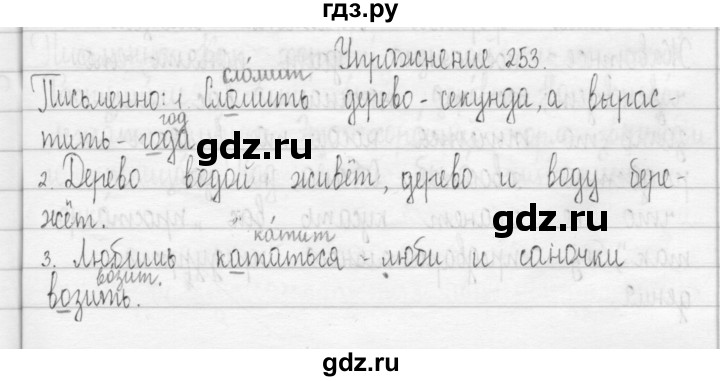 гдз.ру
Упражнение 253.
сломит
Письменно: 1 сломить дерево - секунда, а вырас-
год
тить - года
gdz.ru
2. Дерево водой живёт, дерево и воду бере-
жёт.
gdz.ru
катит
3. Любишь кататься - люби и саночки
возит.
возить.
gdz.ru